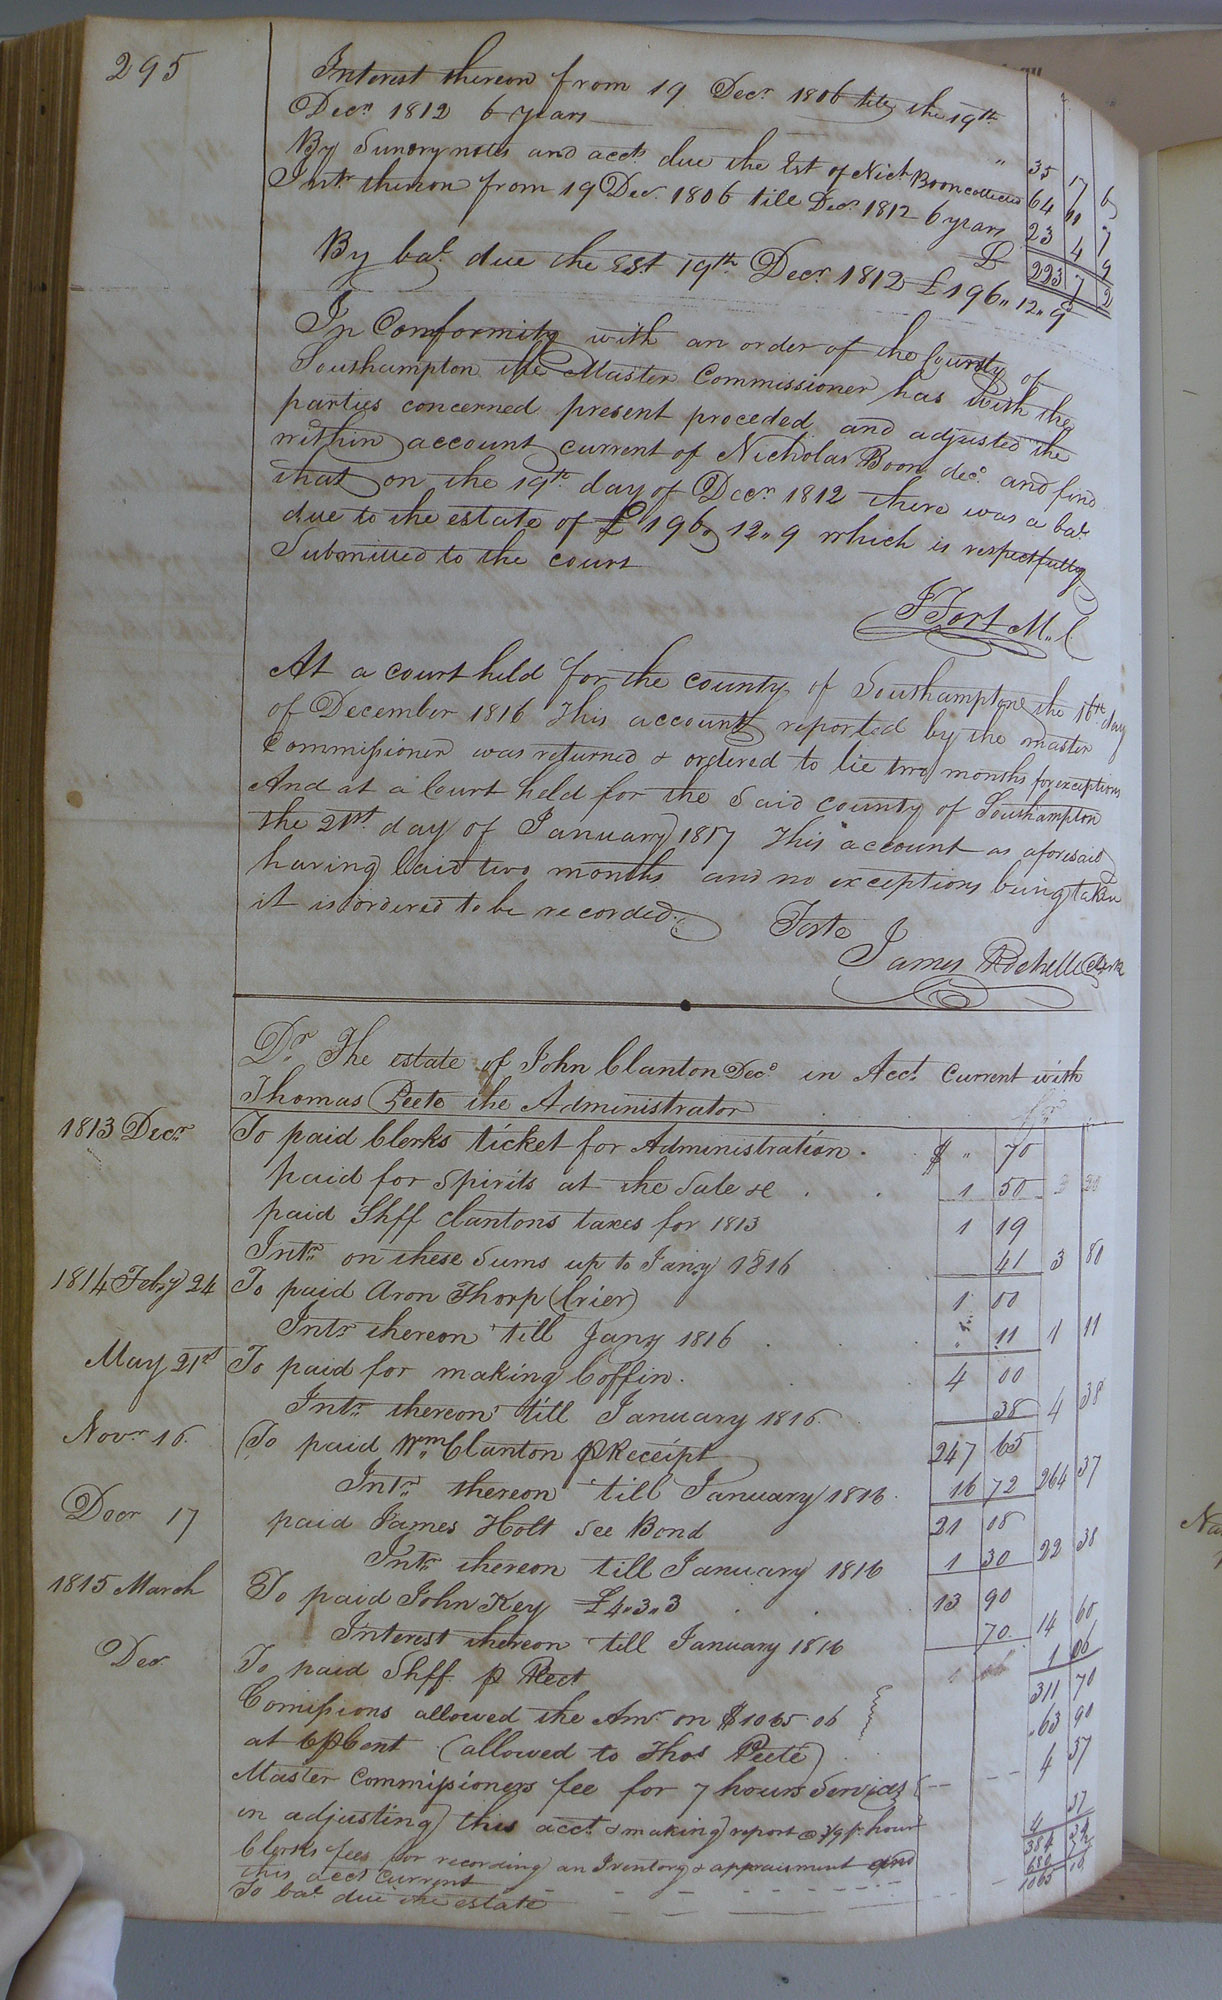 295
Interest thereon from 19 Decr 1806 till the 19th
Decr 1812 6 years " 35 17 6
By Sundry notes and accts due the Est of Nichs Boon collected 64 10 7
Intr thereon from 19 Decr 1806 till Decr 1812 6 years 23 4 9
£ 223 7 2
By balc due the Est 19th Decr 1812 £196,, 12,, 9
In Conformity with an order of the County of
Southampton the Master Commissioner has with the
parties concerned present proceded and adjusted the
within account current of Nicholas Boon decd and find
that on the 19th day of Decr 1812 there was a balc
due to the estate of £196,, 12,, 9 which is respectfully
Submitted to the court
J Fort M,, C
At a court held for the county of Southampton the 16th day
of December 1816 This account reported by the master
Commissioner was returned & ordered to lie two months for exceptions
And at a Court held for the said county of Southampton
the 21st day of January 1817 This account as aforesaid
having laid two months and no exceptions being taken
it is ordered to be recorded.
Teste
James Rochelle Clerk
Dr The estate of John Clanton Decd in Acct Current with
Thomas Peete the Administrator
1813 Decr To paid Clerks ticket for Administration $ " 70
paid for Spirits at the Sale &c 1 50 2 20
paid Shff Clantons taxes for 1813 1 19
Intr on these Sums up to Jany 1816 41 3 80
1814 Feby 24 To paid Aron Thorp (Crier) 1 00
Intr thereon till Jany 1816 11 1 11
May 21st To paid for making Coffin 4 00
Intr thereon till January 1816 38 4 38
Novr 16 To paid Wm Clanton p Receipt 247 65
Intr thereon till January 1816 16 72 264 37
Decr 17 paid James Holt See Bond 21 08
Intr thereon till January 1816 1 30 22 38
1815 March To paid John Key £4,, 3,, 3 13 90
Interest thereon till January 1816 70 14 60
Decr To paid Shff p Rect 1 06
311 70
Comissions allowed the Amr on $1065 06
at 6 p Cent (allowed to Thos Peete) 63 90
Master Commissioners fee for 7 hours Services
in adjusting this acct & making report @ 3/9 p hour 4 37
Clerks fees for recording an Inventory & appraisment and
this acct Current 4 37
384 34
To balc due the estate 680 72
1065 06